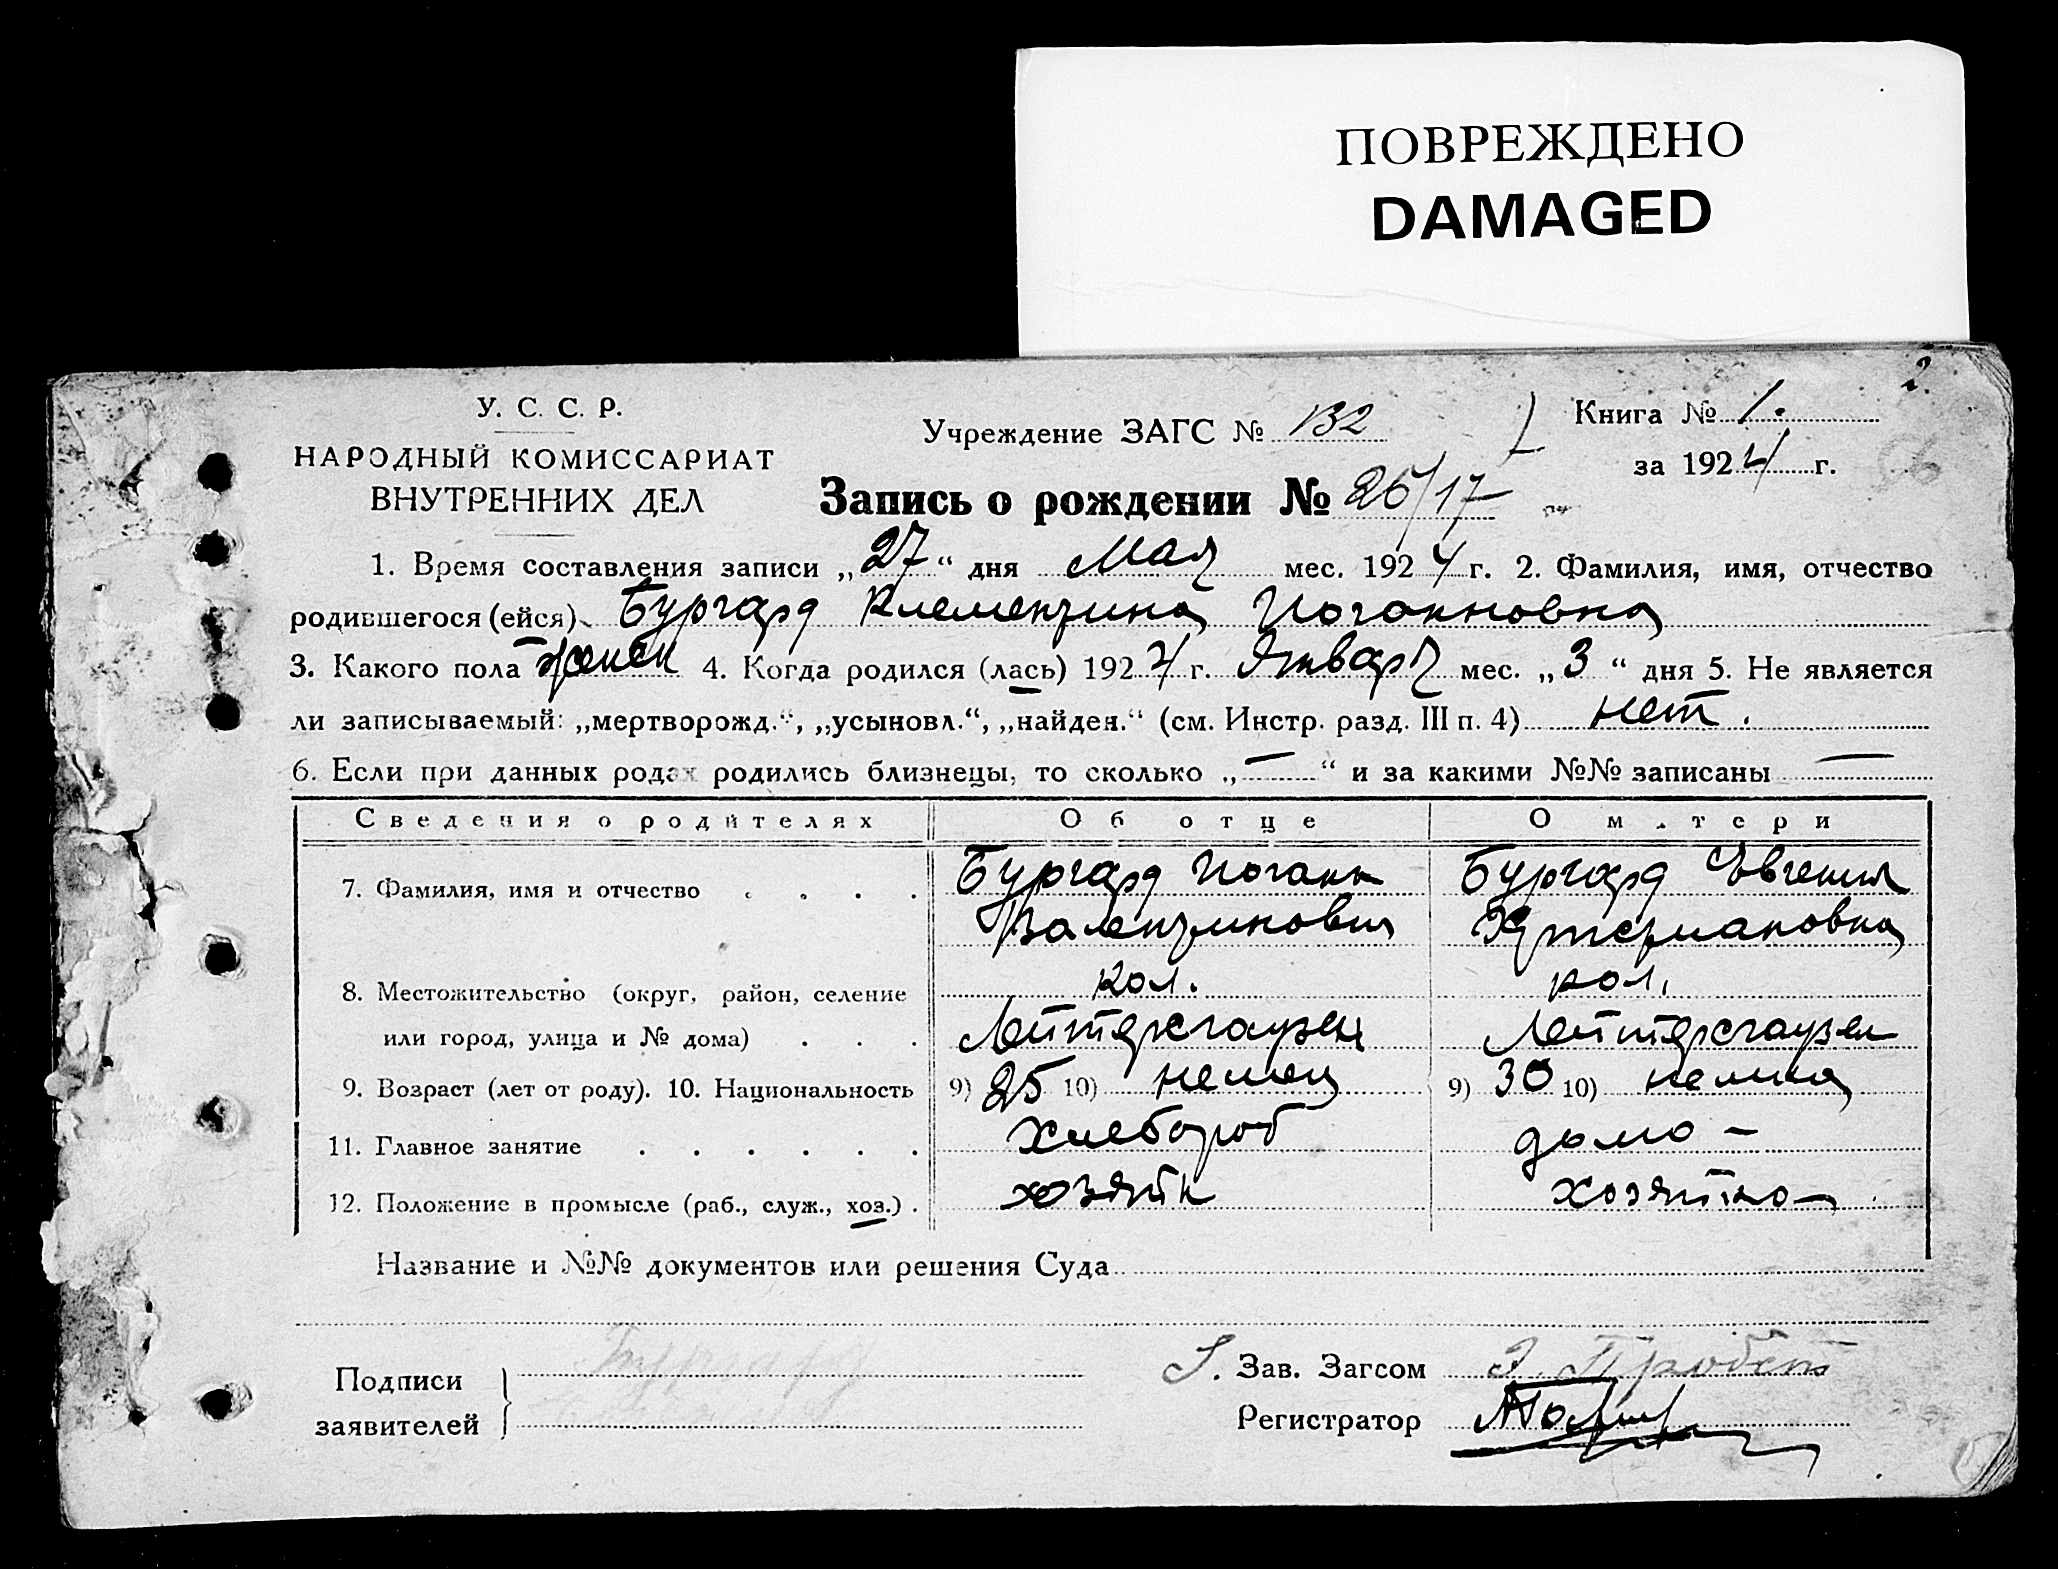 ПОВРЕЖДЕНО
DAMAGED
2.
У. С. С. Р.
НАРОДНЫЙ КОМИССАРИАТ
ВНУТРЕННИХ ДЕЛ
Учреждение ЗАГС № 132
Книга № 1.
за 1924 г.
Запись о рождении № 26/17
1. Время составления записи „27“ дня Мая мес. 1924 г. 2. Фамилия, имя, отчество
родившегося (ейся) Бургард Клементина Иоганновна
3. Какого пола женск 4. Когда родился (лась) 1924 г. Января мес. „3“ дня 5. Не является
ли записываемый: „мертворожд.“, „усыновл.“, „найден.“ (см. Инстр. разд. III п. 4) нет.
6. Если при данных родах родились близнецы, то сколько „—“ и за какими №№ записаны —
Сведения о родителях Об отце О матери
7. Фамилия, имя и отчество . . . . Бургард Иоганн Бургард Евгения
Валентинович
8. Местожительство (округ, район, селение кол. кол.
или город, улица и № дома) . . . Лейтерсгаузен Лейтерсгаузен
9. Возраст (лет от роду). 10. Национальность 9) 25 10) немец 9) 30 10) немка
11. Главное занятие . . . . . . Хлебороб домо-
12. Положение в промысле (раб., служ., хоз.) . хозяин хозяйка
Название и №№ документов или решения Суда
Подписи Бургард
заявителей
Зав. Загсом
Регистратор